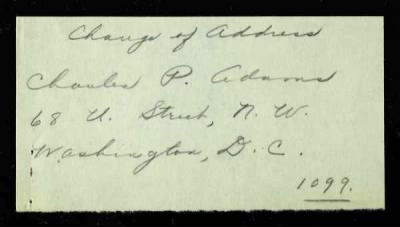 Change of Address
Charles P. Adams
68 U. Street, N. W.
Washington, D. C.
1099.